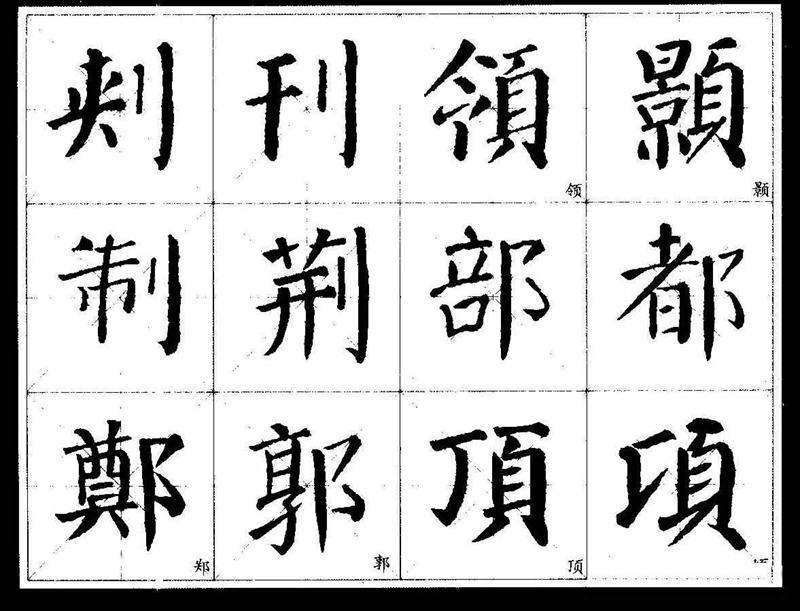 顥颢
都
項
領领
部
頂顶
刊
荆
郭郭
刾
制
鄭郑